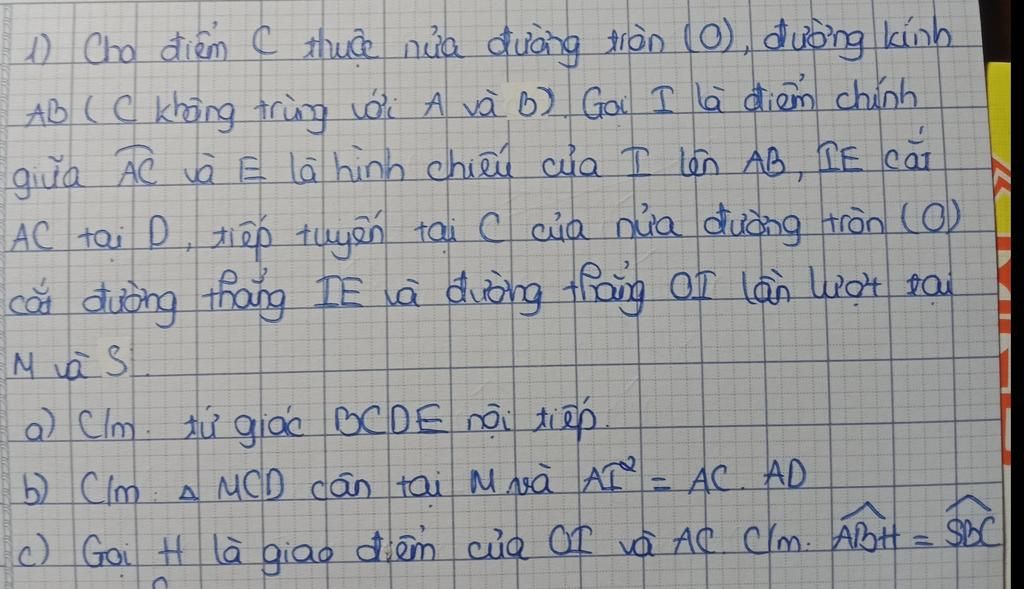 1) Cho điểm C thuộc nửa đường tròn (O), đường kính
AB (C không trùng với A và B). Gọi I là điểm chính
giữa \overparen{AC} và E là hình chiếu của I lên AB, IE cắt
AC tại D, tiếp tuyến tại C của nửa đường tròn (O)
cắt đường thẳng IE và đường thẳng OI lần lượt tại
M và S.
a) C/m. tứ giác BCDE nội tiếp.
b) C/m: △ MCD cân tại M và AI² = AC. AD
c) Gọi H là giao điểm của OI và AC C/m. \widehat{ABH} = \widehat{SBC}